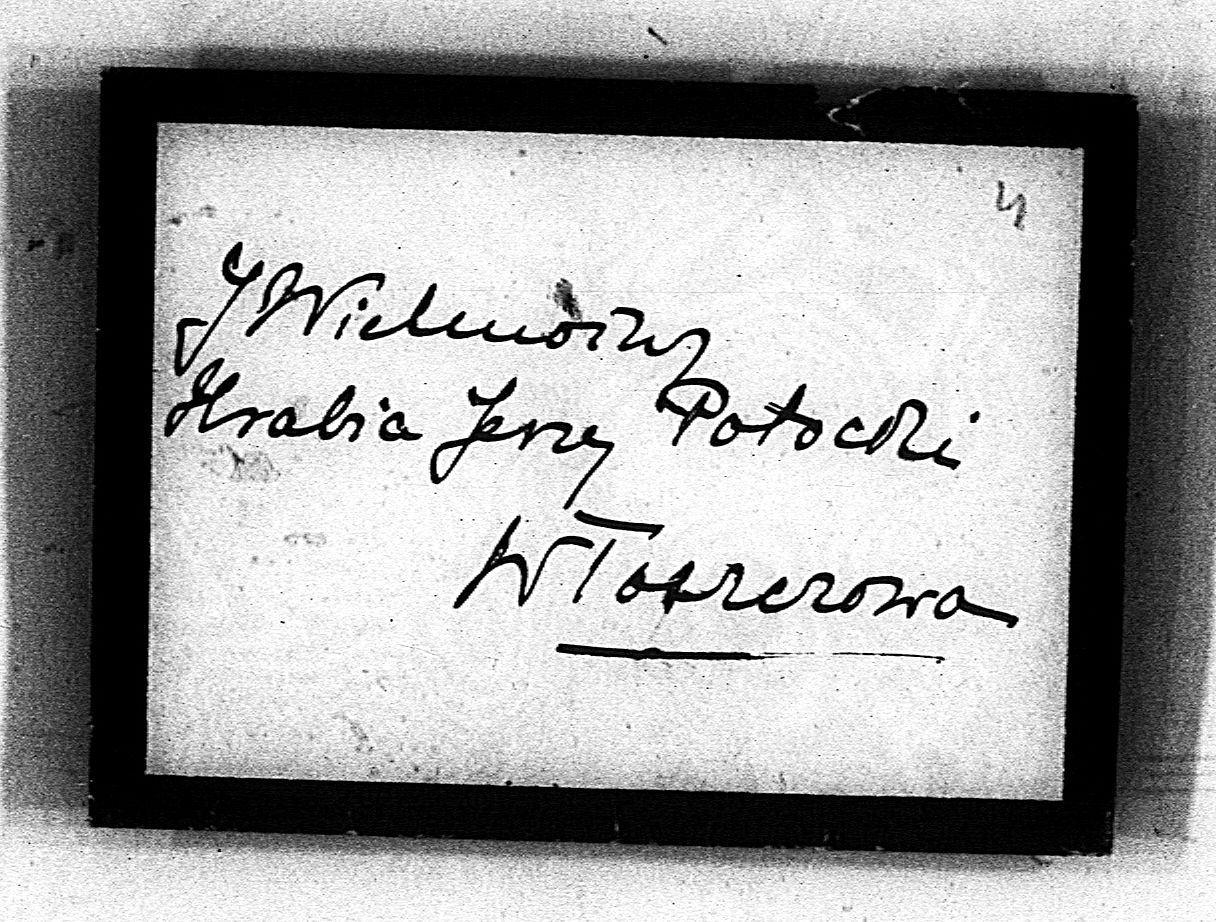 4
JWielmożny
Hrabia Jerzy Potocki
WŁoszczowa